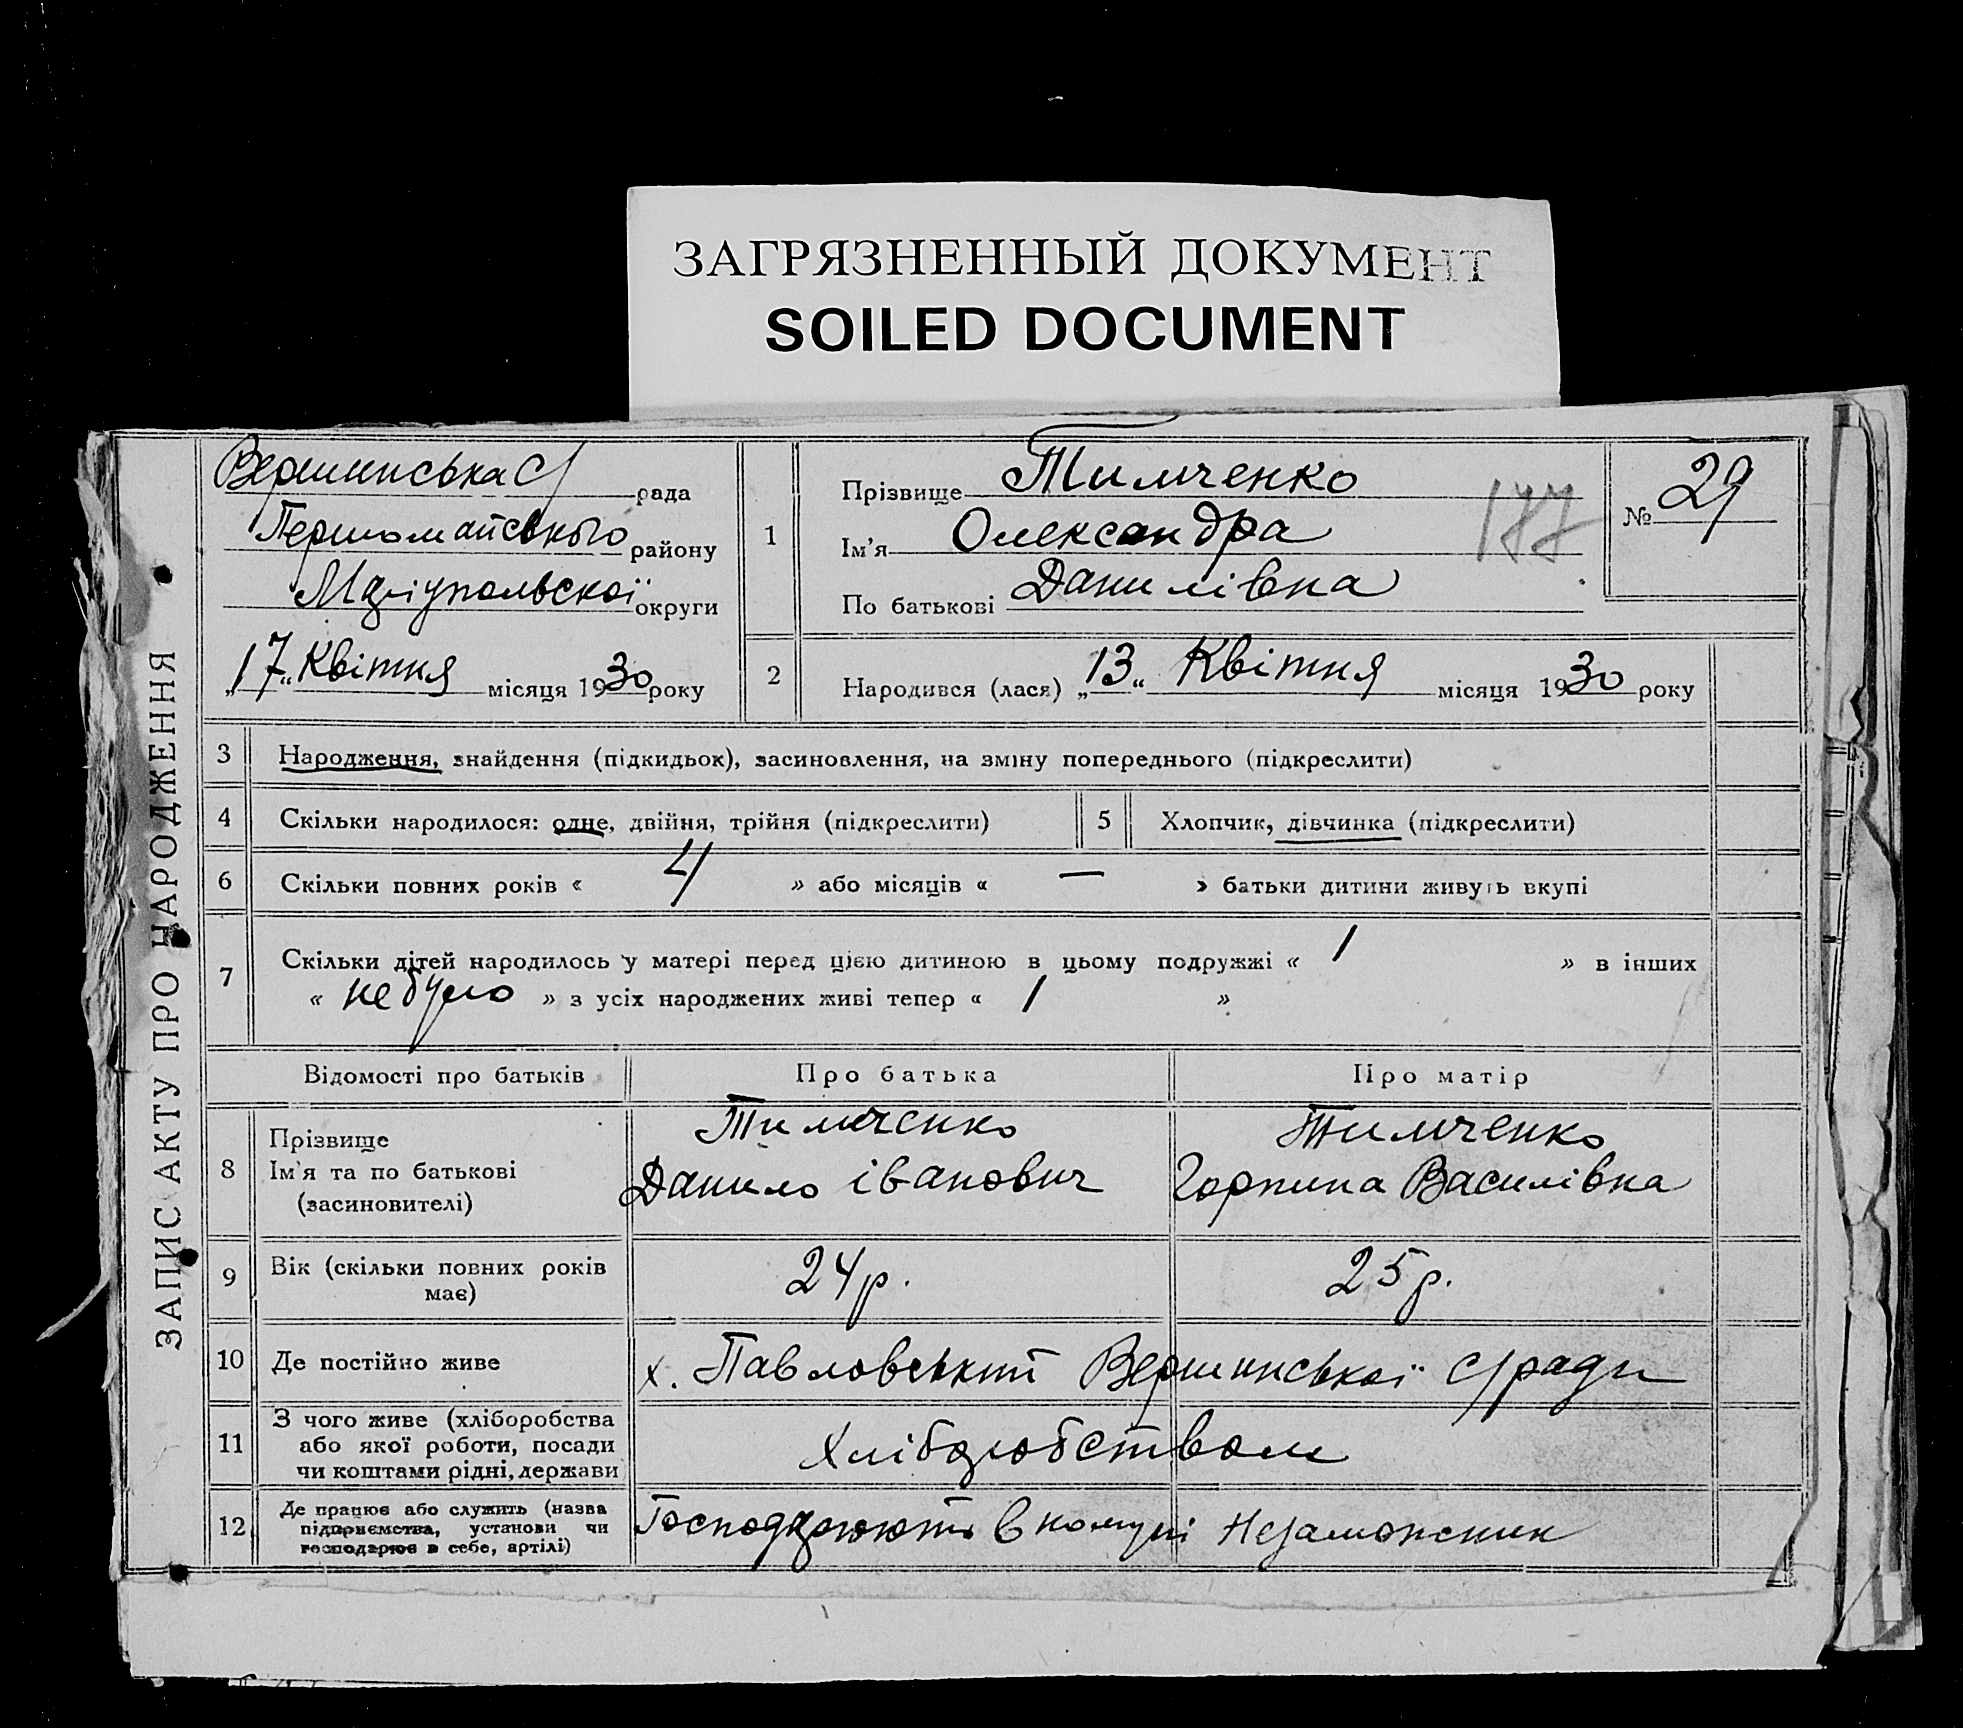 ЗАГРЯЗНЕННЫЙ ДОКУМЕНТ
SOILED DOCUMENT
ЗАПИС АКТУ ПРО НАРОДЖЕННЯ
Вершинська с/рада
Першомайського району
Маріупольскої округи
„17“ Квітня місяця 1930 року
1
Прізвище Тимченко
Ім'я Олександра
По батькові Данилівна
177
№ 29
2
Народився (лася) „13“ Квітня місяця 1930 року
3 Народження, знайдення (підкидьок), засиновлення, на зміну попереднього (підкреслити)
4 Скільки народилося: одне, двійня, трійня (підкреслити) 5 Хлопчик, дівчинка (підкреслити)
6 Скільки повних років « 4 » або місяців « — » батьки дитини живуть вкупі
7 Скільки дітей народилось у матері перед цією дитиною в цьому подружжі « 1 » в інших
« не було » з усіх народжених живі тепер « 1 »
Відомості про батьків Про батька Про матір
8 Прізвище
Ім'я та по батькові
(засиновителі)
Тимченко
Данило іванович
Тимченко
Горпина Василівна
9 Вік (скільки повних років
має)
24 р.
25 р.
10 Де постійно живе х. Павловський Вершинської с/ради
11 З чого живе (хліборобства
або якої роботи, посади
чи коштами рідні, держави
Хліборобством
12 Де працює або служить (назва
підприємства, установи чи
господарює в себе, артілі)
Господарюють в комуні Незаможник